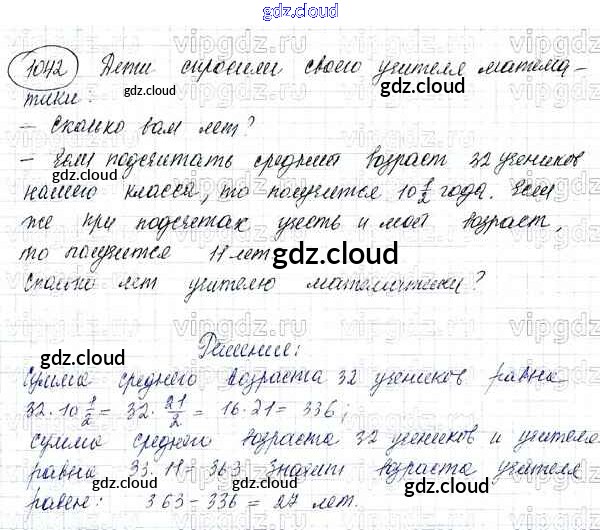 gdz.cloud
1042 Дети спросили своего учителя матема-
тики:
gdz.cloud gdz.cloud
- Сколько вам лет?
- Если подсчитать средний возраст 32 учеников
нашего класса, то получится 10 1/2 года. Если
же при подсчетах учесть и мой возраст,
то получится 11 лет.
gdz.cloud
Сколько лет учителю математики?
Решение:
gdz.cloud
Сумма среднего возраста 32 учеников равна
32·10 1/2 = 32·21/2 = 16·21 = 336;
gdz.cloud
сумма среднего возраста 32 учеников и учителя
равна 33·11 = 363 Значит возраста учителя
gdz.cloud gdz.cloud
равен: 363-336 = 27 лет.
vipgdz.ru